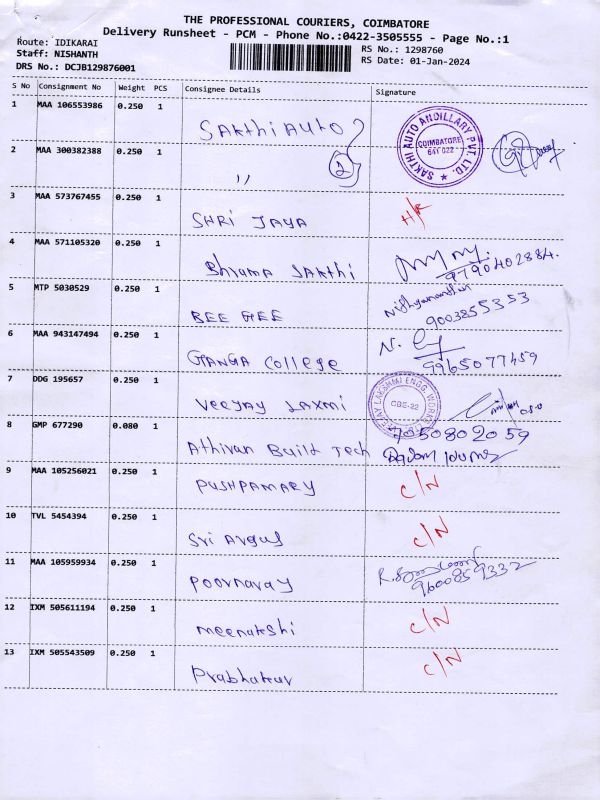 THE PROFESSIONAL COURIERS, COIMBATORE
Delivery Runsheet - PCM - Phone No.:0422-3505555 - Page No.:1
Route: IDIKARAI
Staff: NISHANTH RS No.: 1298760
DRS No.: DCJB129876001 RS Date: 01-Jan-2024
S No Consignment No Weight PCS Consignee Details Signature
1 MAA 106553986 0.250 1 SAKthi AUTO
SAKTHI AUTO ANCILLARY PVT. LTD. ★ COIMBATORE 641 022
2 MAA 300382388 0.250 1 ,, 2
3 MAA 573767455 0.250 1 SHRI JAYA
4 MAA 571105320 0.250 1 Bhrama SAKthi 9790402884.
5 MTP 5030529 0.250 1 BEE GEE Nithyananthan 9003855353
6 MAA 943147494 0.250 1 GANGA College 9965077459
7 DDG 195657 0.250 1 Veejay Laxmi
LAKSHMI ENGG. WORKS CBE-22
8 GMP 677290 0.080 1 Athivan Build Tech 7050802059
9 MAA 105256021 0.250 1 PUSHPAMARY C/N
10 TVL 5454394 0.250 1 Sri Argus C/N
11 MAA 105959934 0.250 1 Poornavay 9600859332
12 IXM 505611194 0.250 1 meenakshi C/N
13 IXM 505543509 0.250 1 Prabhakur C/N